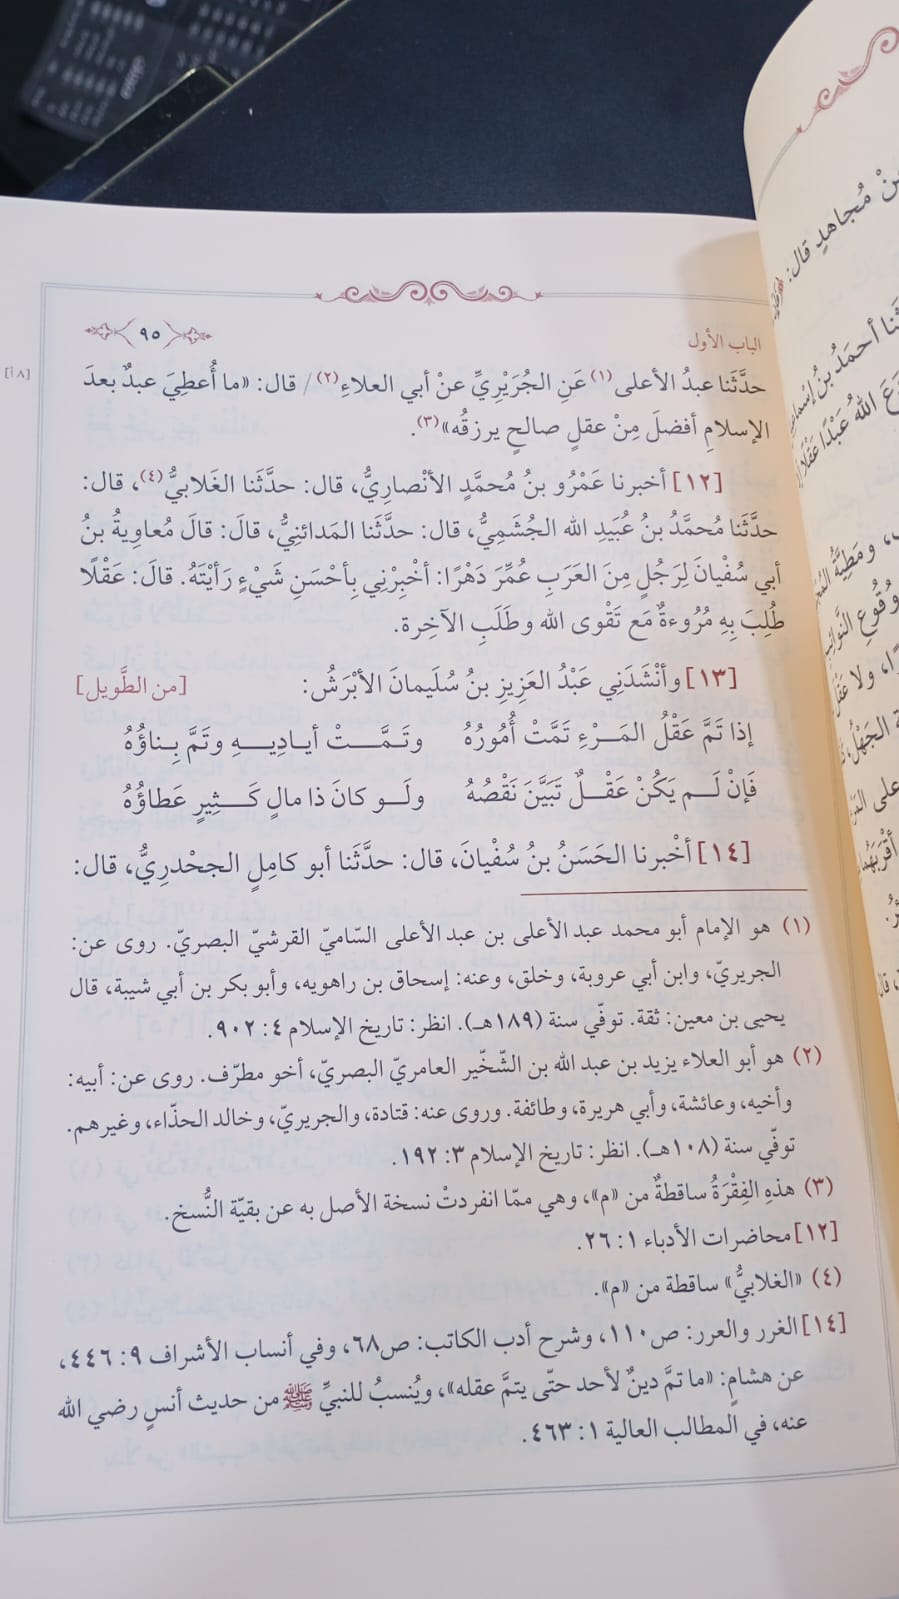 الباب الأول
٩٥
[٨أ]
حدَّثَنا عبدُ الأعلى(١) عَنِ الجُرَيْرِيِّ عنْ أبي العلاءِ(٢)/ قال: «ما أُعطِيَ عبدٌ بعدَ
الإسلامِ أفضلَ مِنْ عقلٍ صالحٍ يرزقُه»(٣).
[١٢] أخبرنا عَمْرُو بنُ مُحمَّدٍ الأنْصاريُّ، قال: حدَّثَنا الغَلابيُّ(٤)، قال:
حدَّثَنا مُحمَّدُ بنُ عُبَيدِ الله الجُشَميُّ، قال: حدَّثَنا المَدائنِيُّ، قالَ: قالَ مُعاوِيةُ بنُ
أبي سُفْيانَ لِرَجُلٍ مِنَ العَرَبِ عُمِّرَ دَهْرًا: أخبِرْنِي بِأحْسَنِ شَيْءٍ رَأيْتَهُ. قالَ: عَقْلًا
طُلِبَ بِهِ مُرُوءةٌ مَع تَقْوى الله وطَلَبِ الآخِرة.
[١٣] وأنْشَدَنِي عَبْدُ العَزِيزِ بنُ سُلَيمانَ الأبْرَشُ: [من الطَّويل]
إذا تَمَّ عَقْلُ المَرْءِ تَمَّتْ أُمُورُهُ وتَمَّتْ أيادِيهِ وتَمَّ بِناؤُهُ
فَإنْ لَم يَكُنْ عَقْلٌ تَبَيَّنَ نَقْصُهُ ولَو كانَ ذا مالٍ كَثِيرٍ عَطاؤُهُ
[١٤] أخْبرنا الحَسَنُ بنُ سُفْيانَ، قال: حدَّثَنا أبو كامِلٍ الجحْدريُّ، قال:
(١) هو الإمام أبو محمد عبد الأعلى بن عبد الأعلى السّاميّ القرشيّ البصريّ. روى عن:
الجريريّ، وابن أبي عروبة، وخلق، وعنه: إسحاق بن راهويه، وأبو بكر بن أبي شيبة، قال
يحيى بن معين: ثقة. توفّي سنة (١٨٩هـ). انظر: تاريخ الإسلام ٤: ٩٠٢.
(٢) هو أبو العلاء يزيد بن عبد الله بن الشّخّير العامريّ البصريّ، أخو مطرّف. روى عن: أبيه:
وأخيه، وعائشة، وأبي هريرة، وطائفة. وروى عنه: قتادة، والجريريّ، وخالد الحذّاء، وغيرهم.
توفّي سنة (١٠٨هـ). انظر: تاريخ الإسلام ٣: ١٩٢.
(٣) هذهِ الفِقْرَةُ ساقطةٌ من «م»، وهي ممّا انفردتْ نسخة الأصل به عن بقيّة النُّسخ.
[١٢] محاضرات الأدباء ١: ٢٦.
(٤) «الغلابيُّ» ساقطة من «م».
[١٤] الغرر والعرر: ص١١٠، وشرح أدب الكاتب: ص٦٨، وفي أنساب الأشراف ٩: ٤٤٦،
عن هشامٍ: «ما تمَّ دينٌ لأحد حتّى يتمَّ عقله»، ويُنسبُ للنبيِّ ﷺ من حديث أنسٍ رضي الله
عنه، في المطالب العالية ١: ٤٦٣.
بنْ مُجاهِدٍ قال: